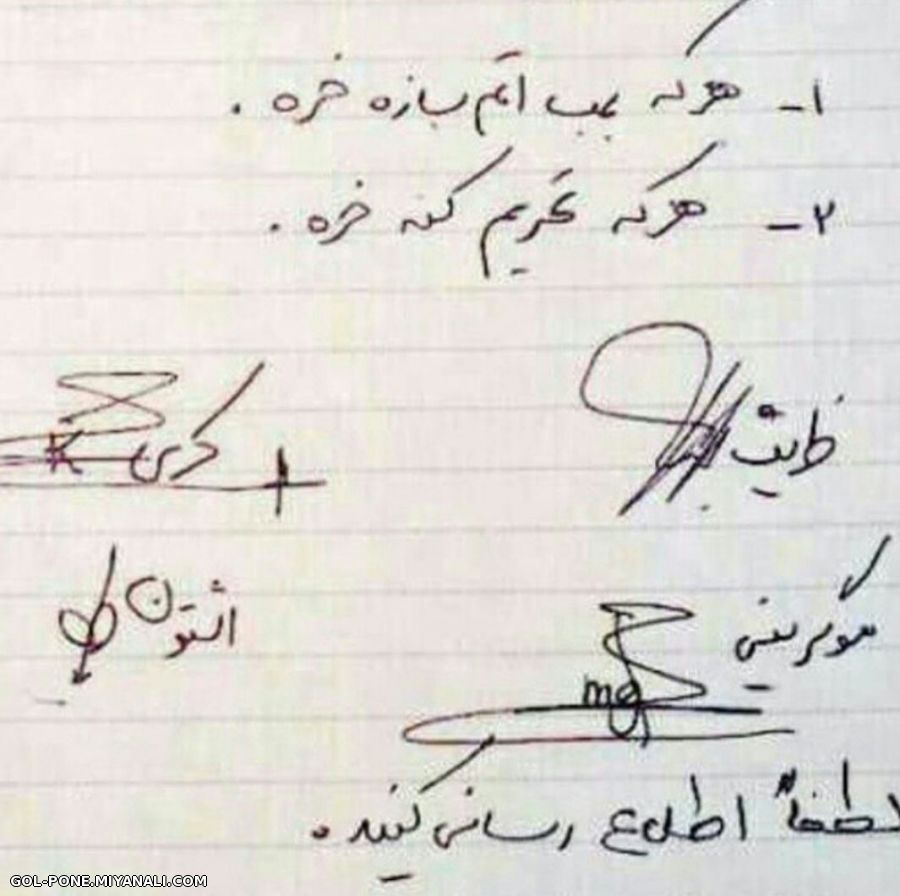 ۱- هرکه بمب اتم بسازه خره .
۲- هرکه تحریم کنه خره .
ظریف
کری K
موگرینی mg
اشتون
لطفاً اطلاع رسانی کنید .
GOL-PONE.MIYANALI.COM